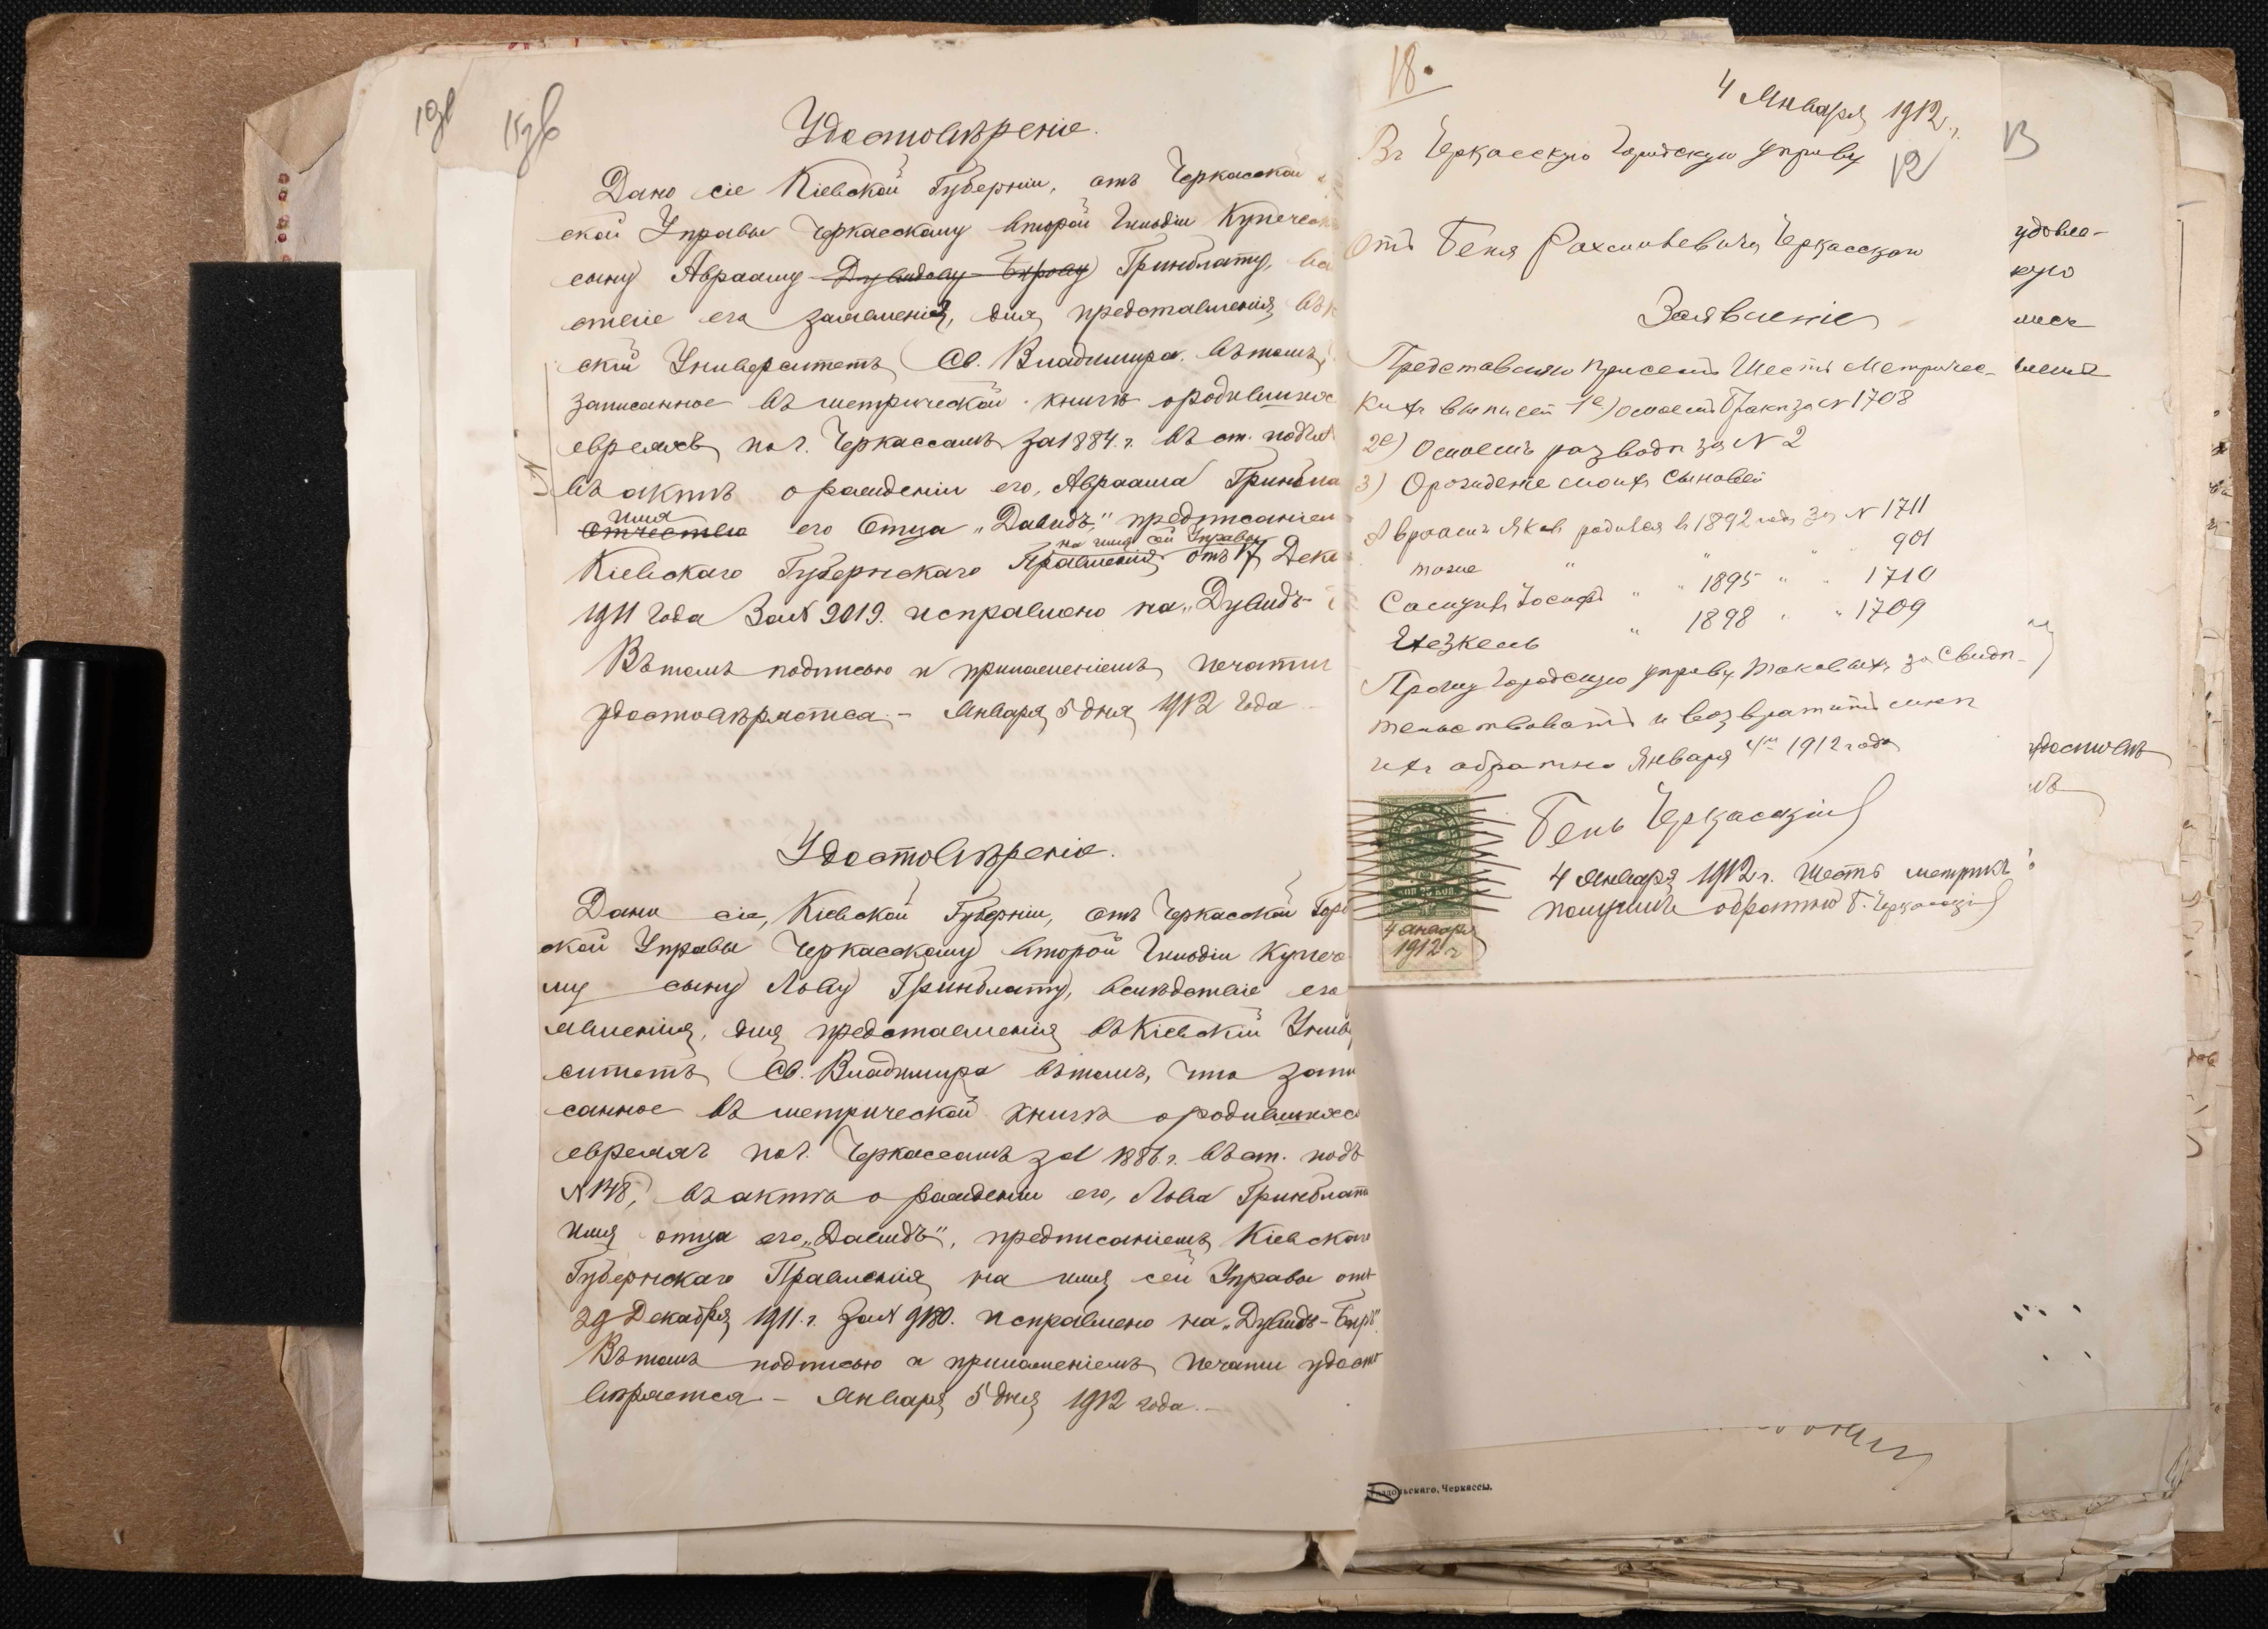 Удостовѣреніе.
Дано сіе Кіевской Губерніи, отъ Черкасской
ской Управы Черкасскому второй Гильдіи Купеческ
сыну Аврааму Дувидову-Берову Гринблату,
ствіе его заявленія, для представленія въ
скій Университетъ Св. Владимира въ томъ,
записанное въ метрической книгѣ о родившихс
евреяхъ по г. Черкассамъ за 1884 г. въ ст. подъ
№
въ актѣ о рожденіи его, Авраама Гринбла
имя
отчество его Отца „Давидъ" предписаніем
на имя сей Управы
Кіевскаго Губернскаго Правленія отъ 17 Дека
1911 года за № 9019. исправлено на „Дувидъ-
Въ томъ подписью и приложеніемъ печати
удостовѣряется. - Января 5 дня 1912 года
Удостовѣреніе.
Дано сіе, Кіевской Губерніи, отъ Черкасской Горо
ской Управы Черкасскому второй Гильдіи Купече
му сыну Льву Гринблату, вслѣдствіе его
явленія, для представленія въ Кіевскій Унив
ситетъ Св. Владимира въ томъ, что запи
санное въ метрической книгѣ о родившихс
евреяхъ по г. Черкассамъ за 1886 г. въ ст. подъ
№ 148, въ актѣ о рожденіи его, Льва Гринблата
имя отца его „Давидъ", предписаніемъ Кіевскаго
Губернскаго Правленія на имя сей Управы отъ
29 Декабря 1911 г. за № 9180. исправлено на „Дувидъ-Беръ".
Въ томъ подписью и приложеніемъ печати удосто
вѣряется - Января 5 дня 1912 года. -
18.
4 Января 1912 г.
Въ Черкасскую Городскую управу
12
13
Отъ Беня Рахмилевича Черкасскаго
Заявленіе
Представляю присемъ Шесть Метричес-
кихъ выписей 1е) о моемъ браки за № 1708
2е) О моемъ разводи за № 2
3) О рождение моихъ сыновей
Авраамъ Яковъ родился в 1892 году за № 1711
тоже " 901
Самуилъ Іосифъ " " 1895 " " 1710
Іезкель " 1898 " " 1709
Прошу Городскую управу таковыхъ засвиди-
тельствовать и возвратить мни
ихъ обратно Января 4го 1912 года
Бень Черкасскій
4 Января 1912 г. Шесть метрикъ
получилъ обратно Б. Черкасскій
75 КОП.
4 января
1912 г
удовле-
кую
мск
удостовѣ
ьскаго, Черкассы.